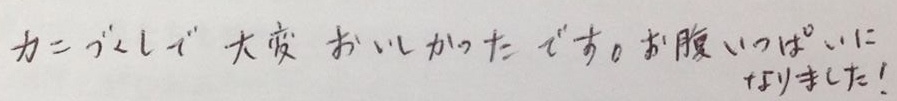 カニづくしで 大変 おいしかったです。お腹いっぱいに
なりました!